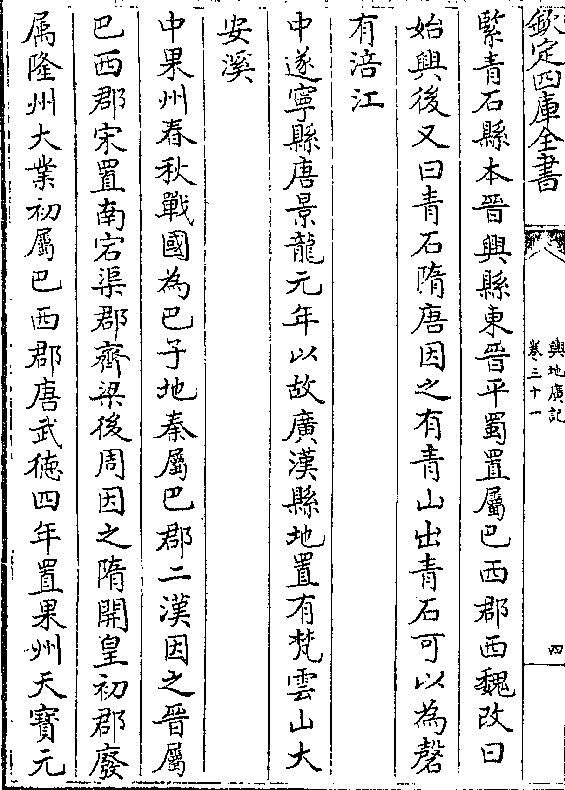 欽定四庫全書
輿地廣記
卷三十一
四
緊青石縣本晉興縣東晉平蜀置屬巴西郡西魏改曰
始興後又曰青石隋唐因之有青山出青石可以為磬
有涪江
中遂寧縣唐景龍元年以故廣漢縣地置有梵雲山大
安溪
中果州春秋戰國為巴子地秦屬巴郡二漢因之晉屬
巴西郡宋置南宕渠郡齊梁後周因之隋開皇初郡廢
属隆州大業初屬巴西郡唐武徳四年置果州天寶元